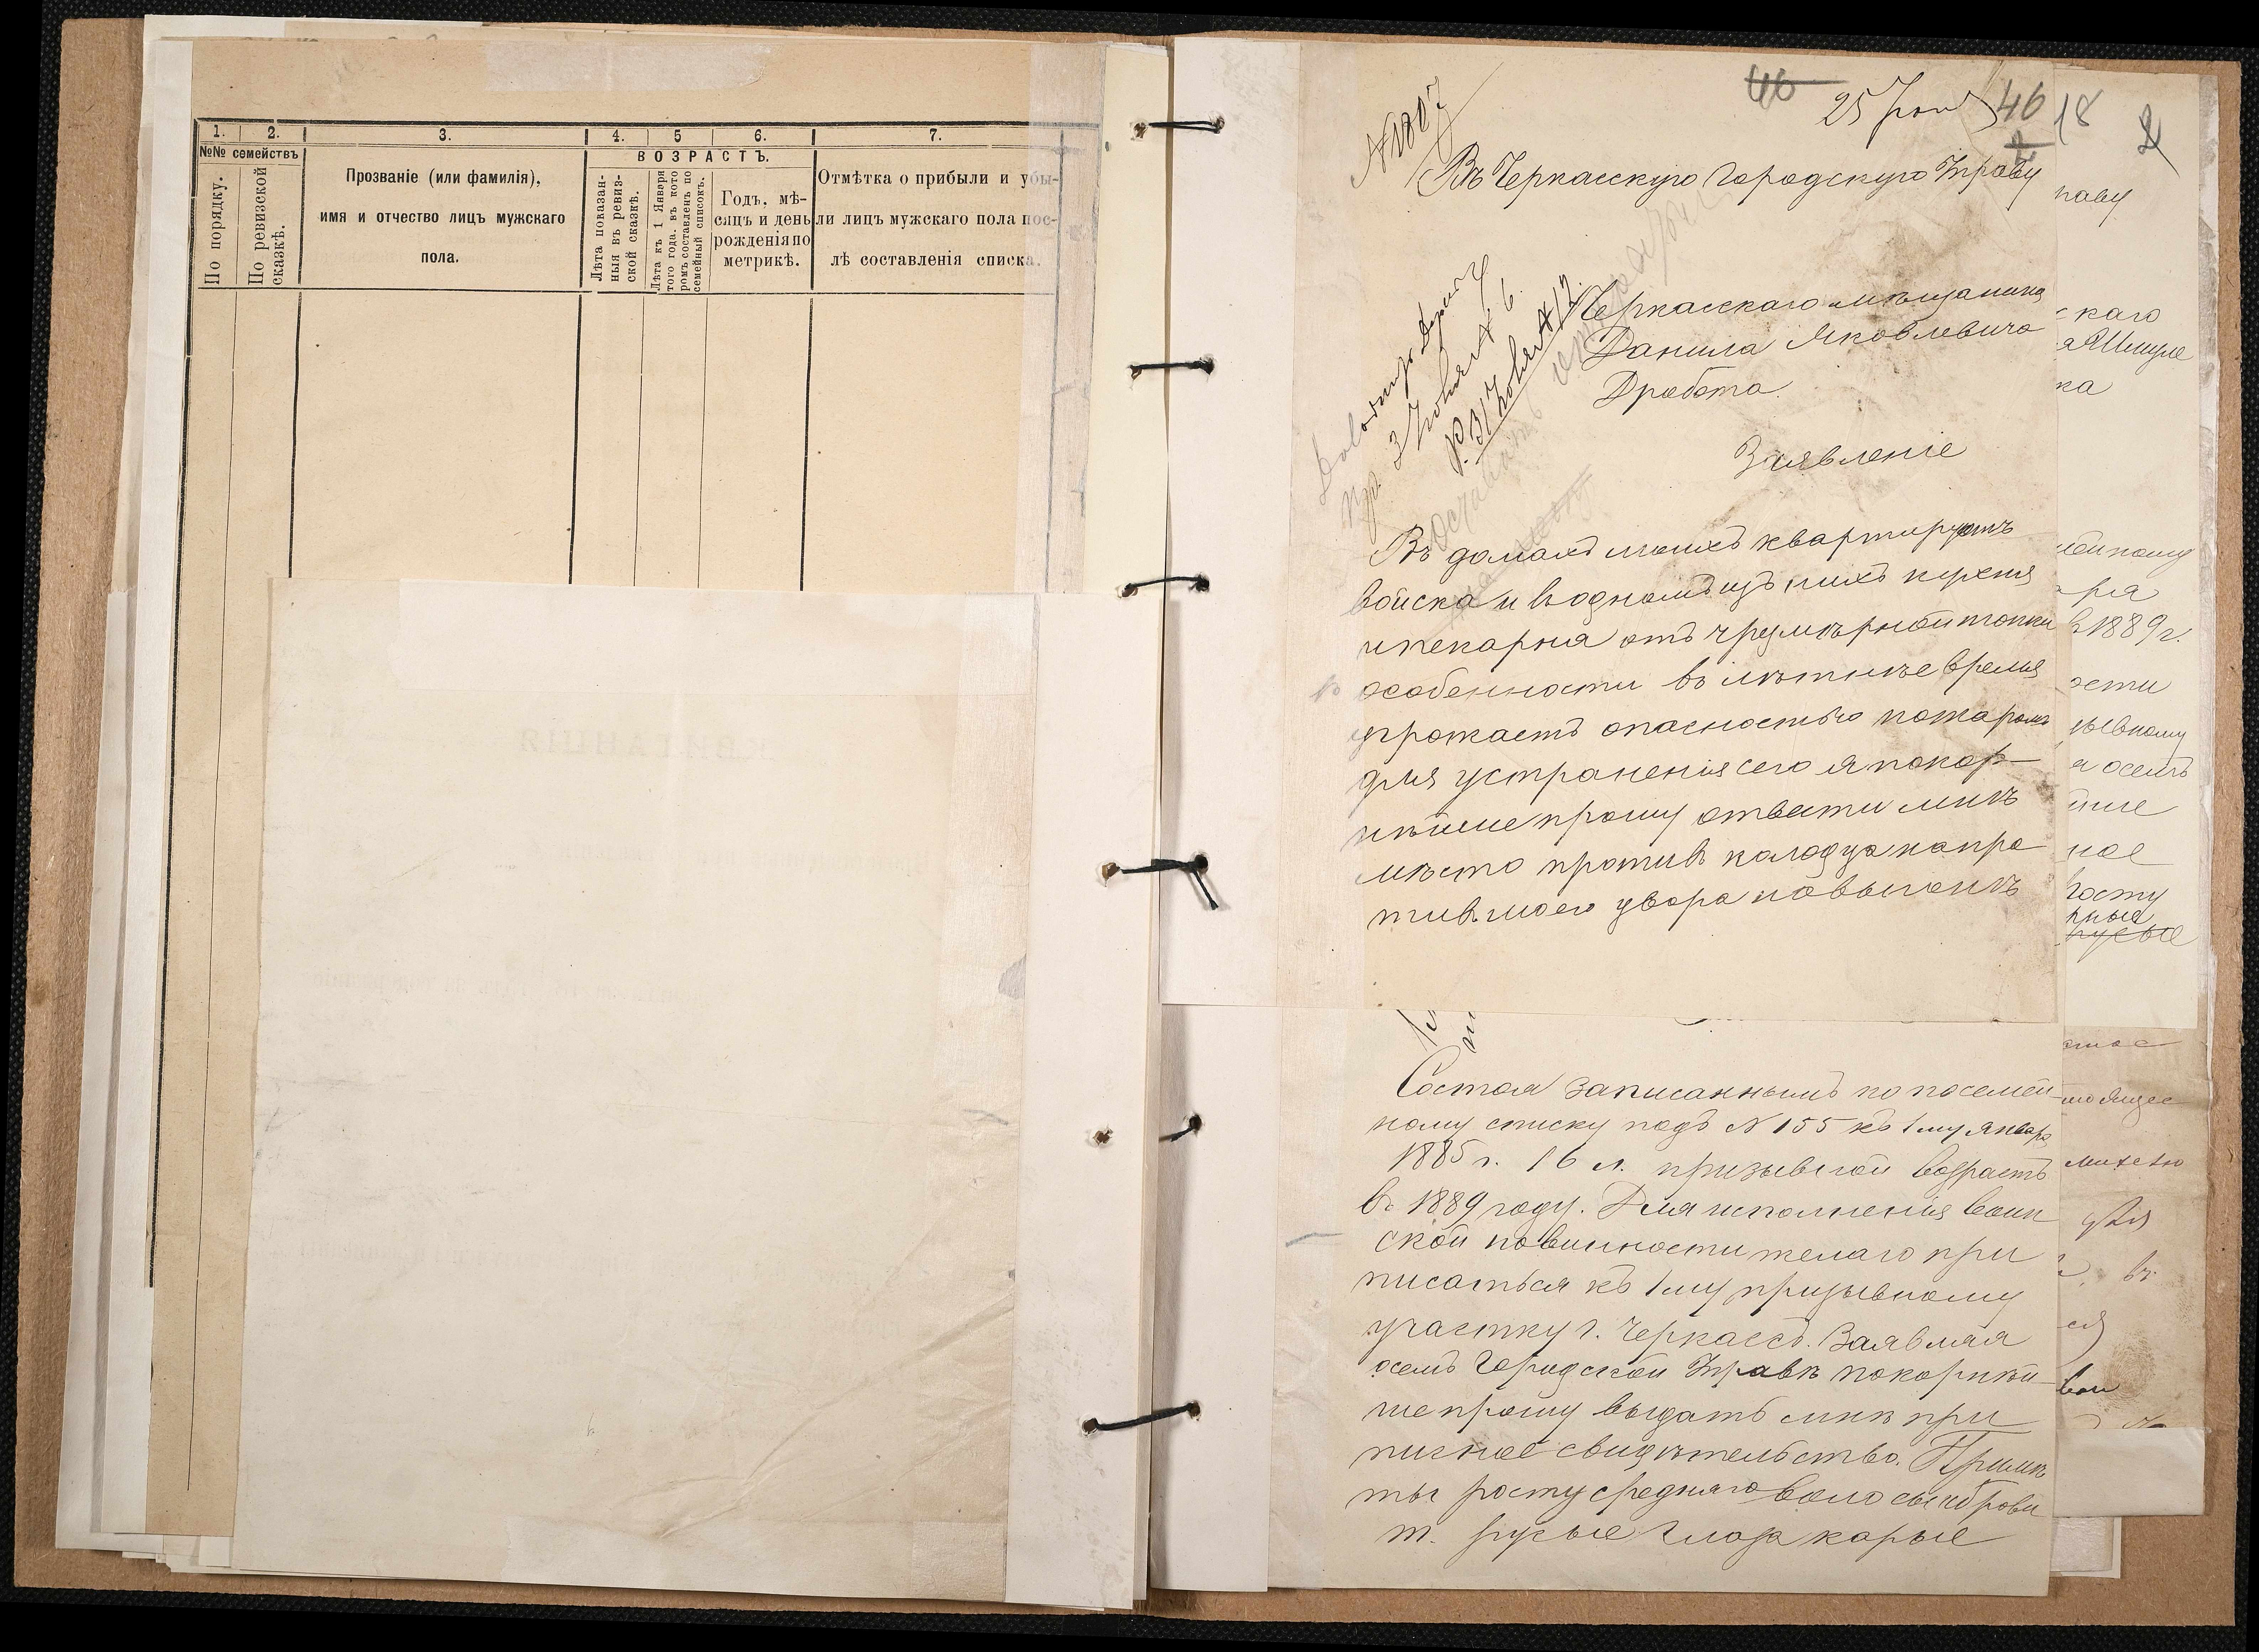 1. 2. 3. 4. 5 6. 7.
№№ семействъ
По порядку.
По ревизской сказкѣ.
Прозваніе (или фамилія),
имя и отчество лицъ мужскаго
пола.
ВОЗРАСТЪ.
Лѣта показан-
ныя въ ревиз-
ской сказкѣ.
Лѣта къ 1 Января
того года, въ кото
ромъ составленъ по
семейный списокъ.
Годъ, мѣ-
сяцъ и день
рожденія по
метрикѣ.
Отмѣтка о прибыли и убы-
ли лицъ мужскаго пола пос-
лѣ составленія списка.
46
25 46
№ 1807
Въ Черкасскую Городскую Управу
Черкасскаго мѣщанина
Данила Яковлевича
Дробота
Заявленіе
Въ домахъ моихъ квартируютъ
войска и въ одномъ изъ нихъ кухня
и пекарня отъ чрезмѣрной топки
особенности въ лѣтнѣе время
угрожаетъ опасностью пожаромъ
для устраненія сего я покор-
нѣйше прошу отвести мнѣ
мѣсто противъ колодца напро
тивъ моего двора на выгонѣ
Состоя записаннымъ по посемей-
ному списку подъ № 155 къ 1му Январ
1885 г. 16 л. призывной возрастъ
въ 1889 году. Для исполненія воин
ской повинности желаю при
писаться къ 1му призывному
участку г. Черкассъ. Заявляя
осемъ Городской Управѣ покорнѣй
ше прошу выдать мнѣ при
писное свидѣтельство. Примѣ
ты росту средняго волосы и брови
т. русые глаза карые
18
наву
скаго
ка
ря
въ 1889 г.
ости
зывному
я осемъ
йше
ное
росту
русые